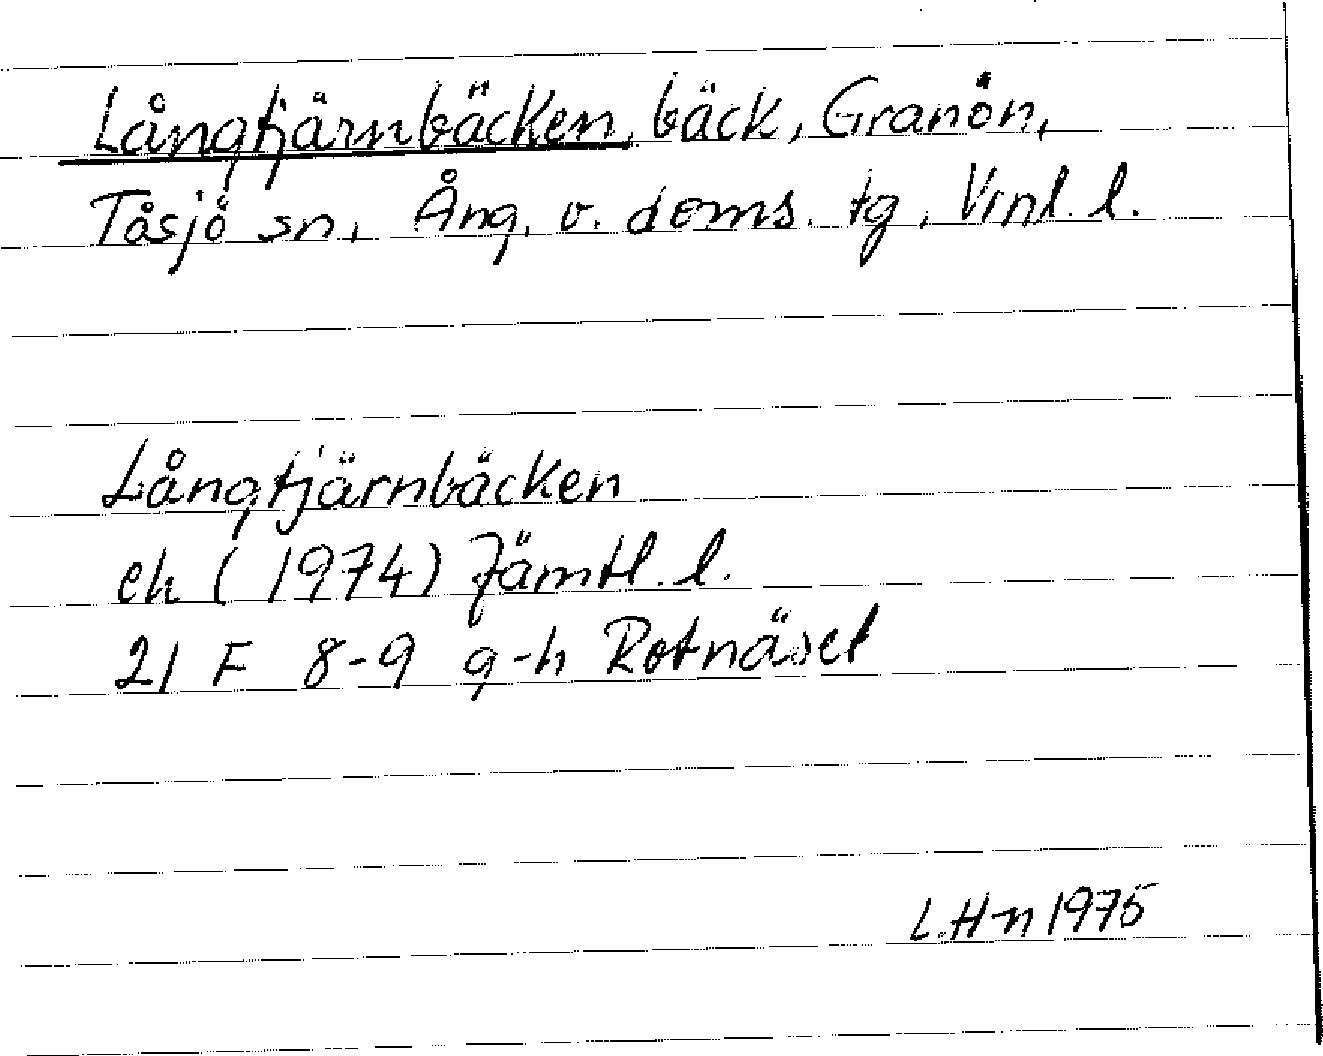 Långtjärnbäcken, bäck, Granön,
Tåsjö sn, Ång. v. doms. tg, Vrnl. l.
Långtjärnbäcken
ek (1974) Jämtl. l.
21 F 8-9 g-h Rotnäset
L.Hn 1975